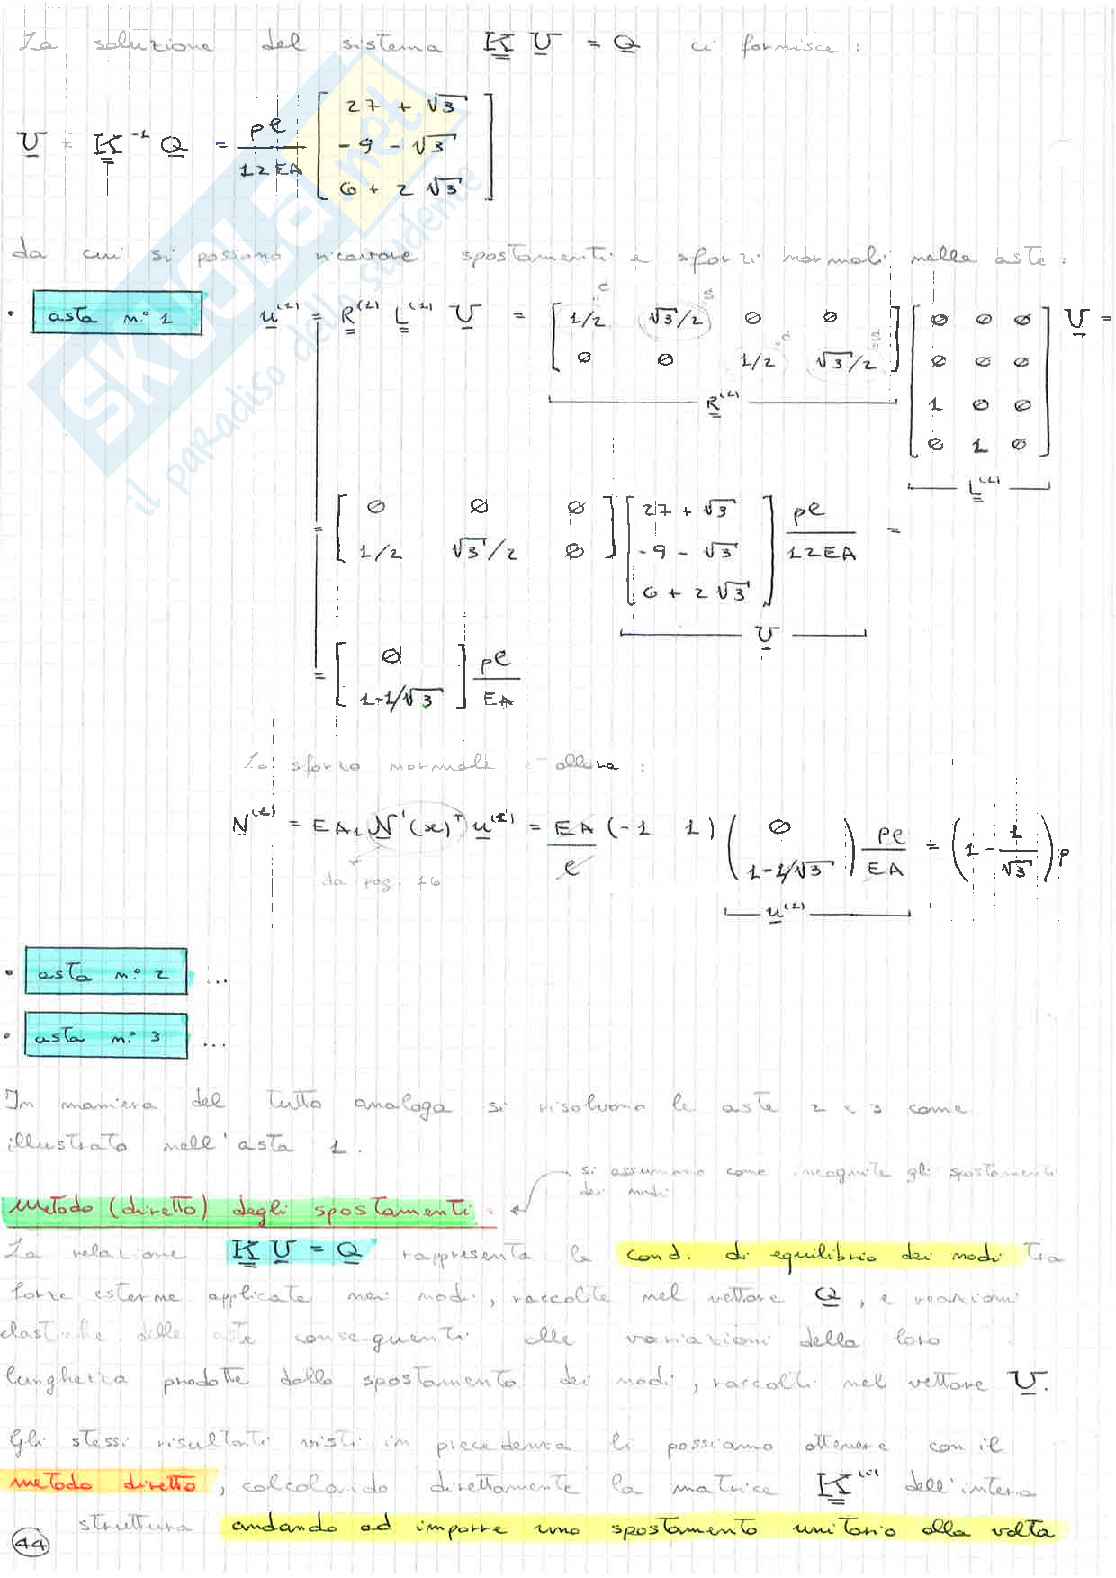 La soluzione del sistema K U = Q ci fornisce :
U = K⁻¹ Q = pl/12EA [ 27 + √3 ; -9 - √3 ; 6 + 2√3 ]
da cui si possono ricavare spostamenti e sforzi normali nelle aste.
• asta n° 1 u⁽¹⁾ = R⁽¹⁾ L⁽¹⁾ U = [ 1/2 √3/2 0 0 ; 0 0 1/2 √3/2 ] [ 0 0 0 ; 0 0 0 ; 1 0 0 ; 0 1 0 ] U =
R⁽¹⁾ L⁽¹⁾
= [ 0 0 0 ; 1/2 √3/2 0 ] [ 27 + √3 ; -9 - √3 ; 6 + 2√3 ] pl/12EA =
U
= [ 0 ; 1-1/√3 ] pl/EA
Lo sforzo normale è allora :
N⁽¹⁾ = EA₁ N'(x)ᵀ u⁽¹⁾ = EA/l (-1 1) ( 0 ; 1-1/√3 ) pl/EA = ( 1 - 1/√3 ) p
da pag. 16
u⁽¹⁾
• asta n° 2 ...
• asta n° 3 ...
In maniera del tutto analoga si risolvono le aste 2 e 3 come
illustrato nell'asta 1.
si assumono come incognite gli spostamenti
dei nodi
Metodo (diretto) degli spostamenti :
La relazione K U = Q rappresenta la cond. di equilibrio dei nodi tra
forze esterne applicate nei nodi, raccolte nel vettore Q, e reazioni
elastiche delle aste conseguenti alle variazioni della loro
lunghezza prodotte dallo spostamento dei nodi, raccolti nel vettore U.
Gli stessi risultati visti in precedenza li possiamo ottenere con il
metodo diretto, calcolando direttamente la matrice K dell'intera
struttura andando ad imporre uno spostamento unitario alla volta
44
SKUOLA.net
il paradiso dello studente